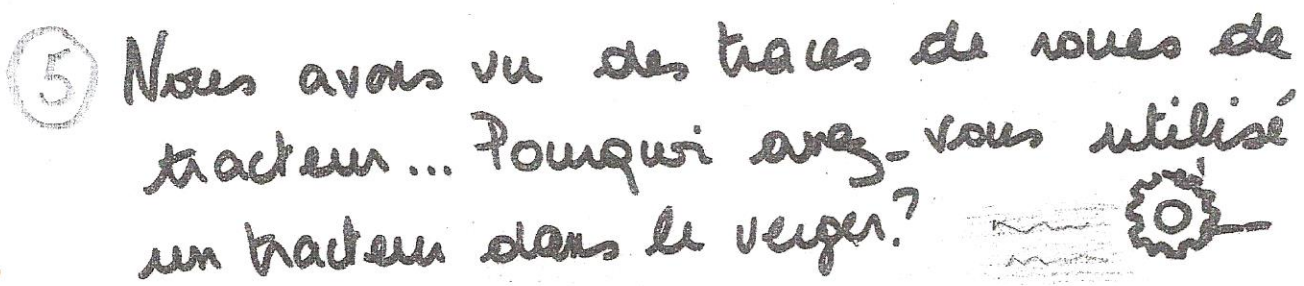 5 Nous avons vu des traces de roues de
tracteur... Pourquoi avez-vous utilisé
un tracteur dans le verger?